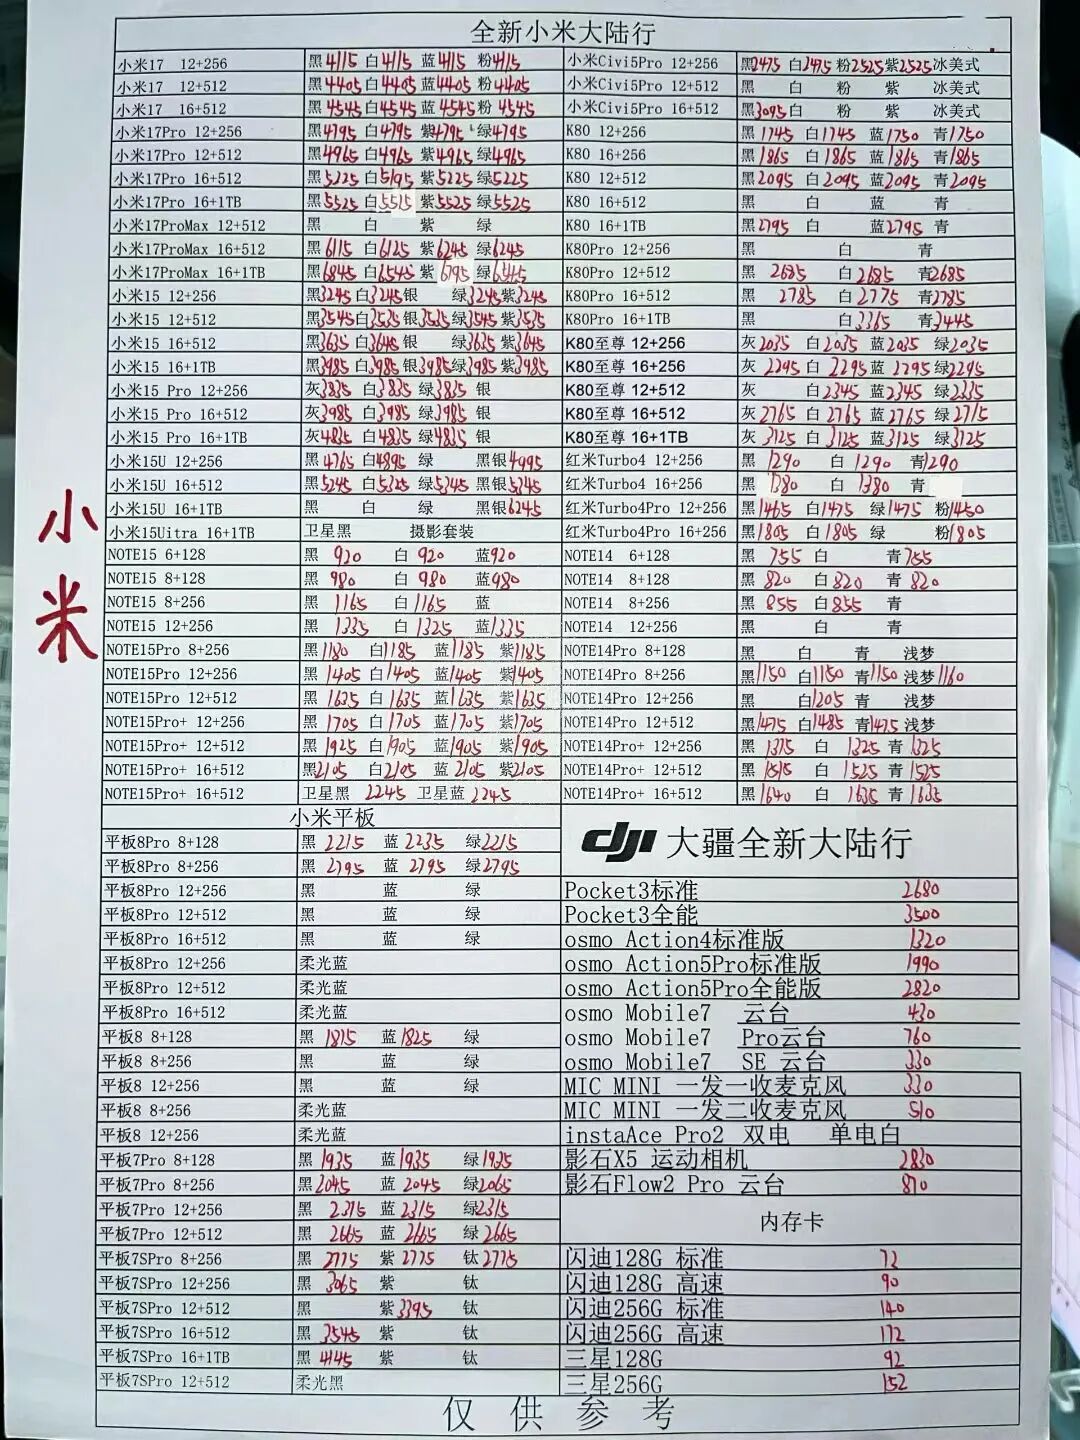 全新小米大陆行
小米17 12+256 黑4115 白4115 蓝4115 粉4115 小米Civi5Pro 12+256 黑2475 白2475 粉2525 紫2525 冰美式
小米17 12+512 黑4405 白4405 蓝4405 粉4405 小米Civi5Pro 12+512 黑 白 粉 紫 冰美式
小米17 16+512 黑4545 白4545 蓝4545 粉4545 小米Civi5Pro 16+512 黑3095 白 粉 紫 冰美式
小米17Pro 12+256 黑4795 白4795 紫4795 绿4795 K80 12+256 黑1745 白1745 蓝1750 青1750
小米17Pro 12+512 黑4965 白4965 紫4965 绿4965 K80 16+256 黑1865 白1865 蓝1865 青1865
小米17Pro 16+512 黑5225 白5195 紫5225 绿5225 K80 12+512 黑2095 白2095 蓝2095 青2095
小米17Pro 16+1TB 黑5525 白5525 紫5525 绿5525 K80 16+512 黑 白 蓝 青
小米17ProMax 12+512 黑 白 紫 绿 K80 16+1TB 黑2795 白 蓝2795 青
小米17ProMax 16+512 黑6115 白6125 紫6245 绿6245 K80Pro 12+256 黑 白 青
小米17ProMax 16+1TB 黑6845 白6545 紫6795 绿 K80Pro 12+512 黑 2685 白2685 青2685
小米15 12+256 黑3245 白3245 银 绿3245 紫3245 K80Pro 16+512 黑 2785 白2775 青2785
小米15 12+512 黑3545 白3535 银3535 绿3545 紫3535 K80Pro 16+1TB 黑 白3365 青3445
小米15 16+512 黑3635 白3645 银 绿3635 紫3645 K80至尊 12+256 灰2035 白2035 蓝2035 绿2035
小米15 16+1TB 黑3985 白3985 银3985 绿3985 紫3985 K80至尊 16+256 灰 2295 白2295 蓝2295 绿2295
小米15 Pro 12+256 灰3835 白3835 绿3835 银 K80至尊 12+512 灰 白2345 蓝2345 绿2335
小米15 Pro 16+512 灰3985 白3985 绿3985 银 K80至尊 16+512 灰2765 白2765 蓝2765 绿2715
小米15 Pro 16+1TB 灰4835 白4835 绿4835 银 K80至尊 16+1TB 灰3125 白3125 蓝3125 绿3125
小米15U 12+256 黑4765 白4895 绿 黑银4995 红米Turbo4 12+256 黑 1290 白 1290 青1290
小米15U 16+512 黑5245 白5325 绿5345 黑银5345 红米Turbo4 16+256 黑 1380 白 1380 青
小米15U 16+1TB 黑 白 绿 黑银6245 红米Turbo4Pro 12+256 黑1465 白1475 绿1475 粉1450
小米15Uitra 16+1TB 卫星黑 摄影套装 红米Turbo4Pro 16+256 黑1805 白1805 绿 粉1805
NOTE15 6+128 黑 920 白 920 蓝920 NOTE14 6+128 黑 755 白 青755
NOTE15 8+128 黑 980 白 980 蓝980 NOTE14 8+128 黑 820 白820 青 820
NOTE15 8+256 黑 1165 白1165 蓝 NOTE14 8+256 黑 855 白855 青
NOTE15 12+256 黑 1335 白 1325 蓝1335 NOTE14 12+256 黑 白 青
NOTE15Pro 8+256 黑1180 白1185 蓝1185 紫1185 NOTE14Pro 8+128 黑 白 青 浅梦
NOTE15Pro 12+256 黑1405 白1405 蓝1405 紫1405 NOTE14Pro 8+256 黑1150 白1150 青1150 浅梦1160
NOTE15Pro 12+512 黑1635 白1635 蓝1635 紫1635 NOTE14Pro 12+256 黑 白1205 青 浅梦
NOTE15Pro+ 12+256 黑1705 白1705 蓝1705 紫1705 NOTE14Pro 12+512 黑1475 白1485 青1475 浅梦
NOTE15Pro+ 12+512 黑1925 白1905 蓝1905 紫1905 NOTE14Pro+ 12+256 黑 1375 白 1325 青 1325
NOTE15Pro+ 16+512 黑2105 白2105 蓝 2105 紫2105 NOTE14Pro+ 12+512 黑 1515 白 1525 青 1525
NOTE15Pro+ 16+512 卫星黑 2245 卫星蓝 2245 NOTE14Pro+ 16+512 黑 1640 白 1635 青 1635
小米
小米平板
dji 大疆全新大陆行
平板8Pro 8+128 黑 2215 蓝 2235 绿2215
平板8Pro 8+256 黑 2795 蓝 2795 绿2795
平板8Pro 12+256 黑 蓝 绿 Pocket3标准 2680
平板8Pro 12+512 黑 蓝 绿 Pocket3全能 3500
平板8Pro 16+512 黑 蓝 绿 osmo Action4标准版 1320
平板8Pro 12+256 柔光蓝 osmo Action5Pro标准版 1990
平板8Pro 12+512 柔光蓝 osmo Action5Pro全能版 2820
平板8Pro 16+512 柔光蓝 osmo Mobile7 云台 430
平板8 8+128 黑 1815 蓝1825 绿 osmo Mobile7 Pro云台 760
平板8 8+256 黑 蓝 绿 osmo Mobile7 SE 云台 330
平板8 12+256 黑 蓝 绿 MIC MINI 一发一收麦克风 330
平板8 8+256 柔光蓝 MIC MINI 一发二收麦克风 510
平板8 12+256 柔光蓝 instaAce Pro2 双电 单电白
平板7Pro 8+128 黑 1935 蓝1935 绿1935 影石X5 运动相机 2830
平板7Pro 8+256 黑2045 蓝 2045 绿2065 影石Flow2 Pro 云台 810
平板7Pro 12+256 黑 2315 蓝 2315 绿2315
内存卡
平板7Pro 12+512 黑 2665 蓝 2665 绿 2665
平板7SPro 8+256 黑 2775 紫 2775 钛2775 闪迪128G 标准 72
平板7SPro 12+256 黑 3065 紫 钛 闪迪128G 高速 90
平板7SPro 12+512 黑 紫3395 钛 闪迪256G 标准 140
平板7SPro 16+512 黑 3545 紫 钛 闪迪256G 高速 172
平板7SPro 16+1TB 黑 4145 紫 钛 三星128G 92
平板7SPro 12+512 柔光黑 三星256G 152
仅供参考